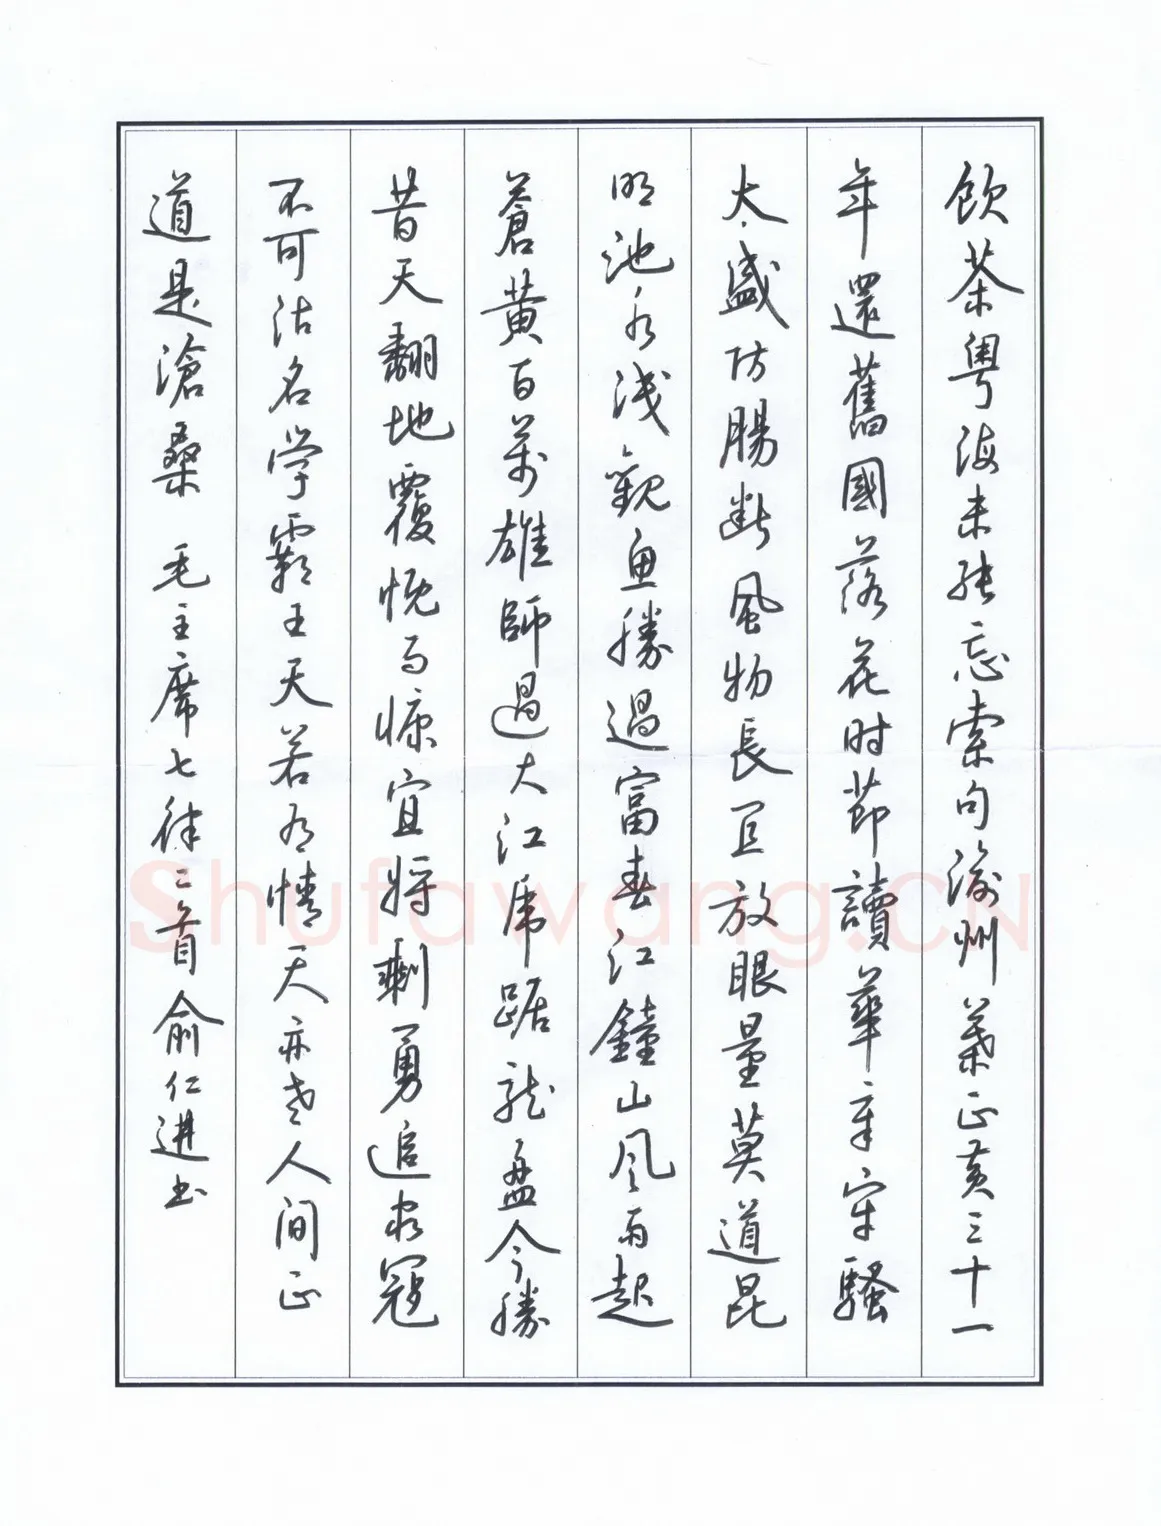 飲茶粤海未能忘索句渝州葉正黃三十一
年還舊國落花时節讀華章牢騷
太盛防腸斷風物長宜放眼量莫道昆
明池水淺觀魚勝過富春江鐘山風雨起
蒼黃百萬雄師過大江虎踞龍盤今勝
昔天翻地覆慨而慷宜將剩勇追窮寇
不可沽名學霸王天若有情天亦老人間正
道是滄桑 毛主席七律二首俞仁進书
Shufawang.CN